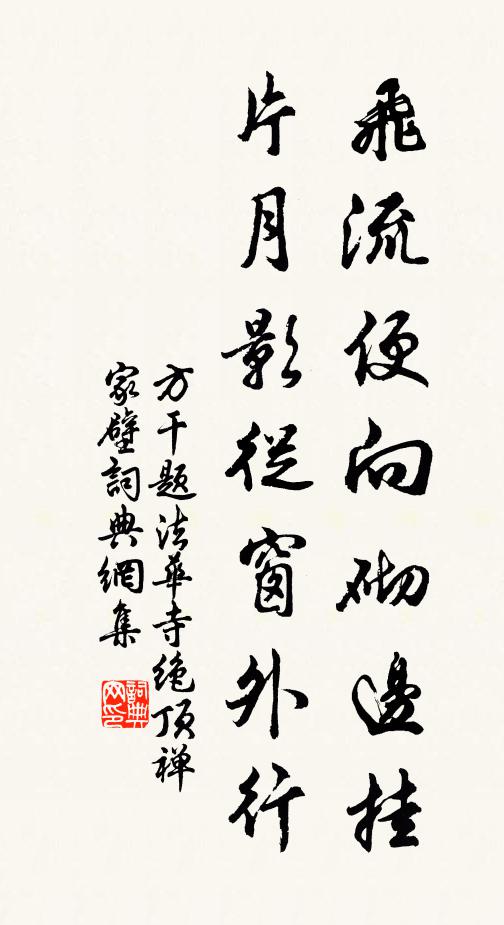 飛流便向砌邊挂
片月影從窗外行
方干题法華寺绝顶禅
家壁詞典網集
詞典网印